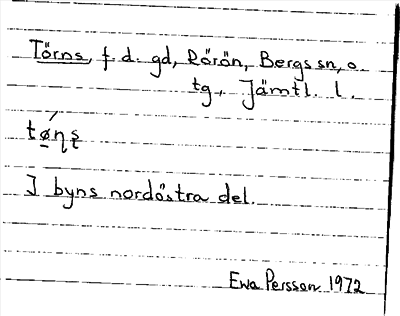 Törns, f.d. gd, Rörön, Bergs sn, o.
tg., Jämtl. l.
tǿ̱ɳʂ
I byns nordöstra del.
Ewa Persson 1972